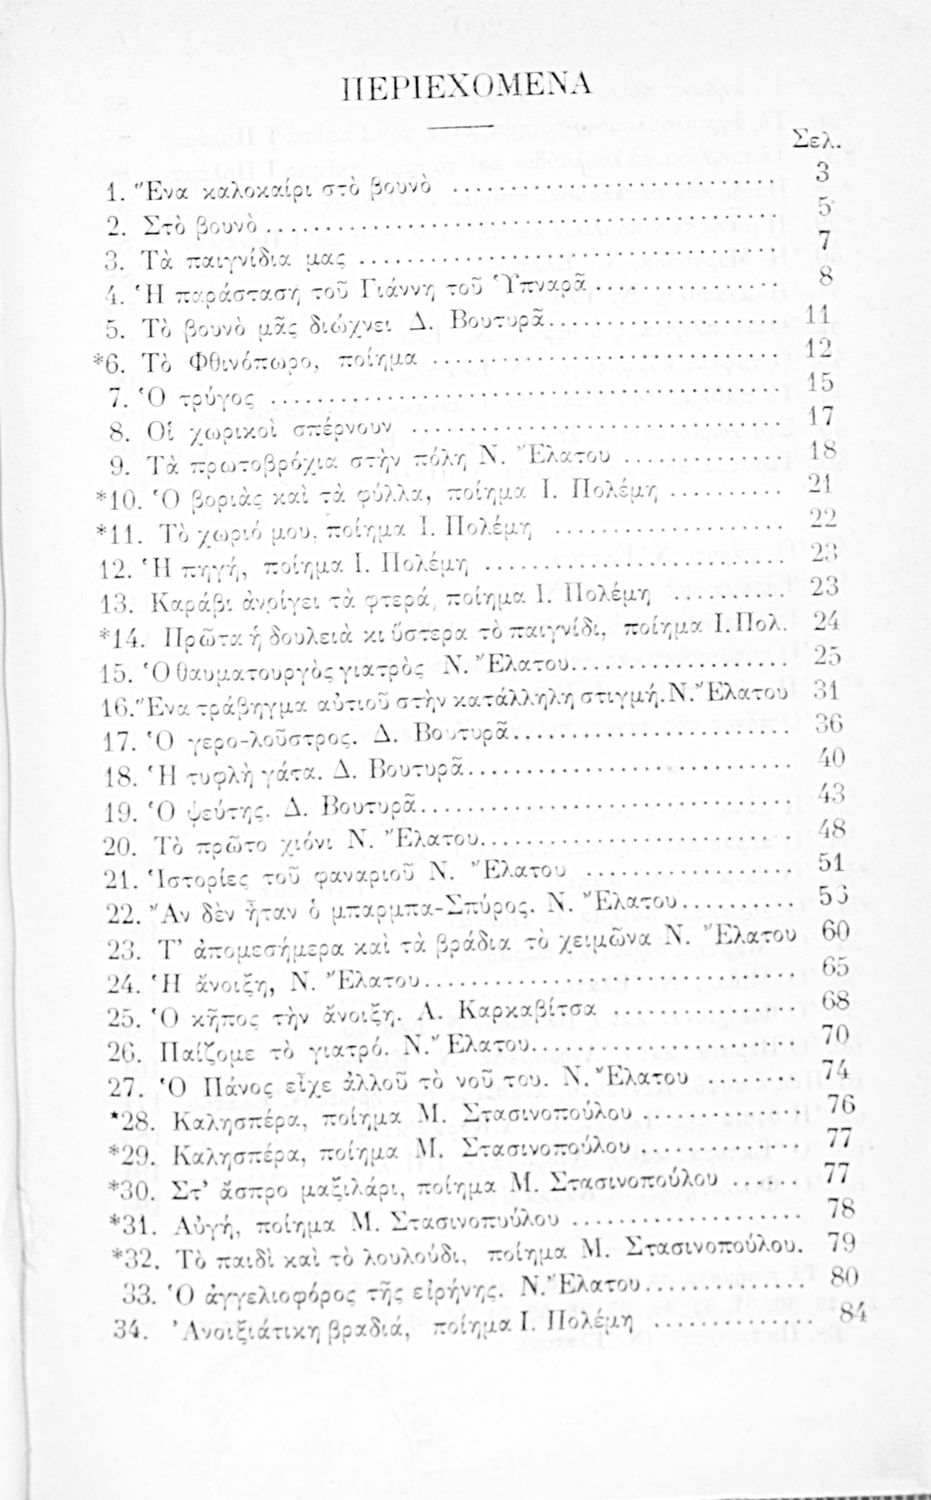 ΠΕΡΙΕΧΟΜΕΝΑ
Σελ.
1. Ἕνα καλοκαίρι στὸ βουνὸ .......... 3
2. Στὸ βουνὸ .......... 5
3. Τὰ παιγνίδια μας .......... 7
4. Ἡ παράσταση τοῦ Γιάννη τοῦ Ὑπναρᾶ .......... 8
5. Τὸ βουνὸ μᾶς διώχνει Δ. Βουτυρᾶ .......... 11
*6. Τὸ Φθινόπωρο, ποίημα .......... 12
7. Ὁ τρύγος .......... 15
8. Οἱ χωρικοὶ σπέρνουν .......... 17
9. Τὰ πρωτοβρόχια στὴν πόλη Ν. Ἔλατου .......... 18
*10. Ὁ βοριὰς καὶ τὰ φύλλα, ποίημα Ι. Πολέμη .......... 21
*11. Τὸ χωριό μου, ποίημα Ι. Πολέμη .......... 22
12. Ἡ πηγή, ποίημα Ι. Πολέμη .......... 23
13. Καράβι ἀνοίγει τὰ φτερά, ποίημα Ι. Πολέμη .......... 23
*14. Πρῶτα ἡ δουλειὰ κι ὕστερα τὸ παιγνίδι, ποίημα Ι. Πολ. 24
15. Ὁ θαυματουργὸς γιατρὸς Ν. Ἔλατου .......... 25
16. Ἕνα τράβηγμα αὐτιοῦ στὴν κατάλληλη στιγμή. Ν. Ἔλατου 31
17. Ὁ γερο-λοῦστρος. Δ. Βουτυρᾶ .......... 36
18. Ἡ τυφλὴ γάτα. Δ. Βουτυρᾶ .......... 40
19. Ὁ ψεύτης. Δ. Βουτυρᾶ .......... 43
20. Τὸ πρῶτο χιόνι Ν. Ἔλατου .......... 48
21. Ἱστορίες τοῦ φαναριοῦ Ν. Ἔλατου .......... 51
22. Ἂν δὲν ἦταν ὁ μπαρμπα-Σπύρος. Ν. Ἔλατου .......... 53
23. Τ' ἀπομεσήμερα καὶ τὰ βράδια τὸ χειμῶνα Ν. Ἔλατου 60
24. Ἡ ἄνοιξη, Ν. Ἔλατου .......... 65
25. Ὁ κῆπος τὴν ἄνοιξη. Α. Καρκαβίτσα .......... 68
26. Παίζομε τὸ γιατρό. Ν. Ἔλατου .......... 70
27. Ὁ Πάνος εἶχε ἀλλοῦ τὸ νοῦ του. Ν. Ἔλατου .......... 74
*28. Καλησπέρα, ποίημα Μ. Στασινοπούλου .......... 76
*29. Καλησπέρα, ποίημα Μ. Στασινοπούλου .......... 77
*30. Στ' ἄσπρο μαξιλάρι, ποίημα Μ. Στασινοπούλου ...... 77
*31. Αὐγή, ποίημα Μ. Στασινοπούλου .......... 78
*32. Τὸ παιδὶ καὶ τὸ λουλούδι, ποίημα Μ. Στασινοπούλου. 79
33. Ὁ ἀγγελιοφόρος τῆς εἰρήνης. Ν. Ἔλατου .......... 80
34. Ἀνοιξιάτικη βραδιά, ποίημα Ι. Πολέμη .......... 84